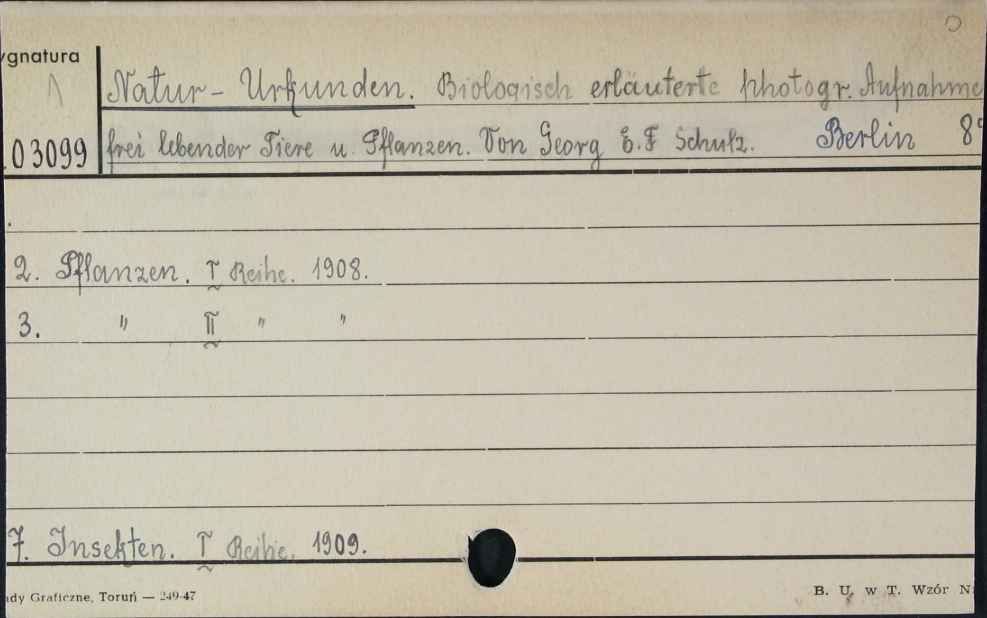 ygnatura
Natur- Urkunden. Biologisch erläuterte photogr. Aufnahme
03099 frei lebender Tiere u. Pflanzen. Von Georg E. F Schulz. Berlin 8°
2. Pflanzen. I Reihe. 1908.
3. " II " "
7. Insekten. I Reihe. 1909.
ady Graficzne, Toruń — 249-47 B. U. w T. Wzór N